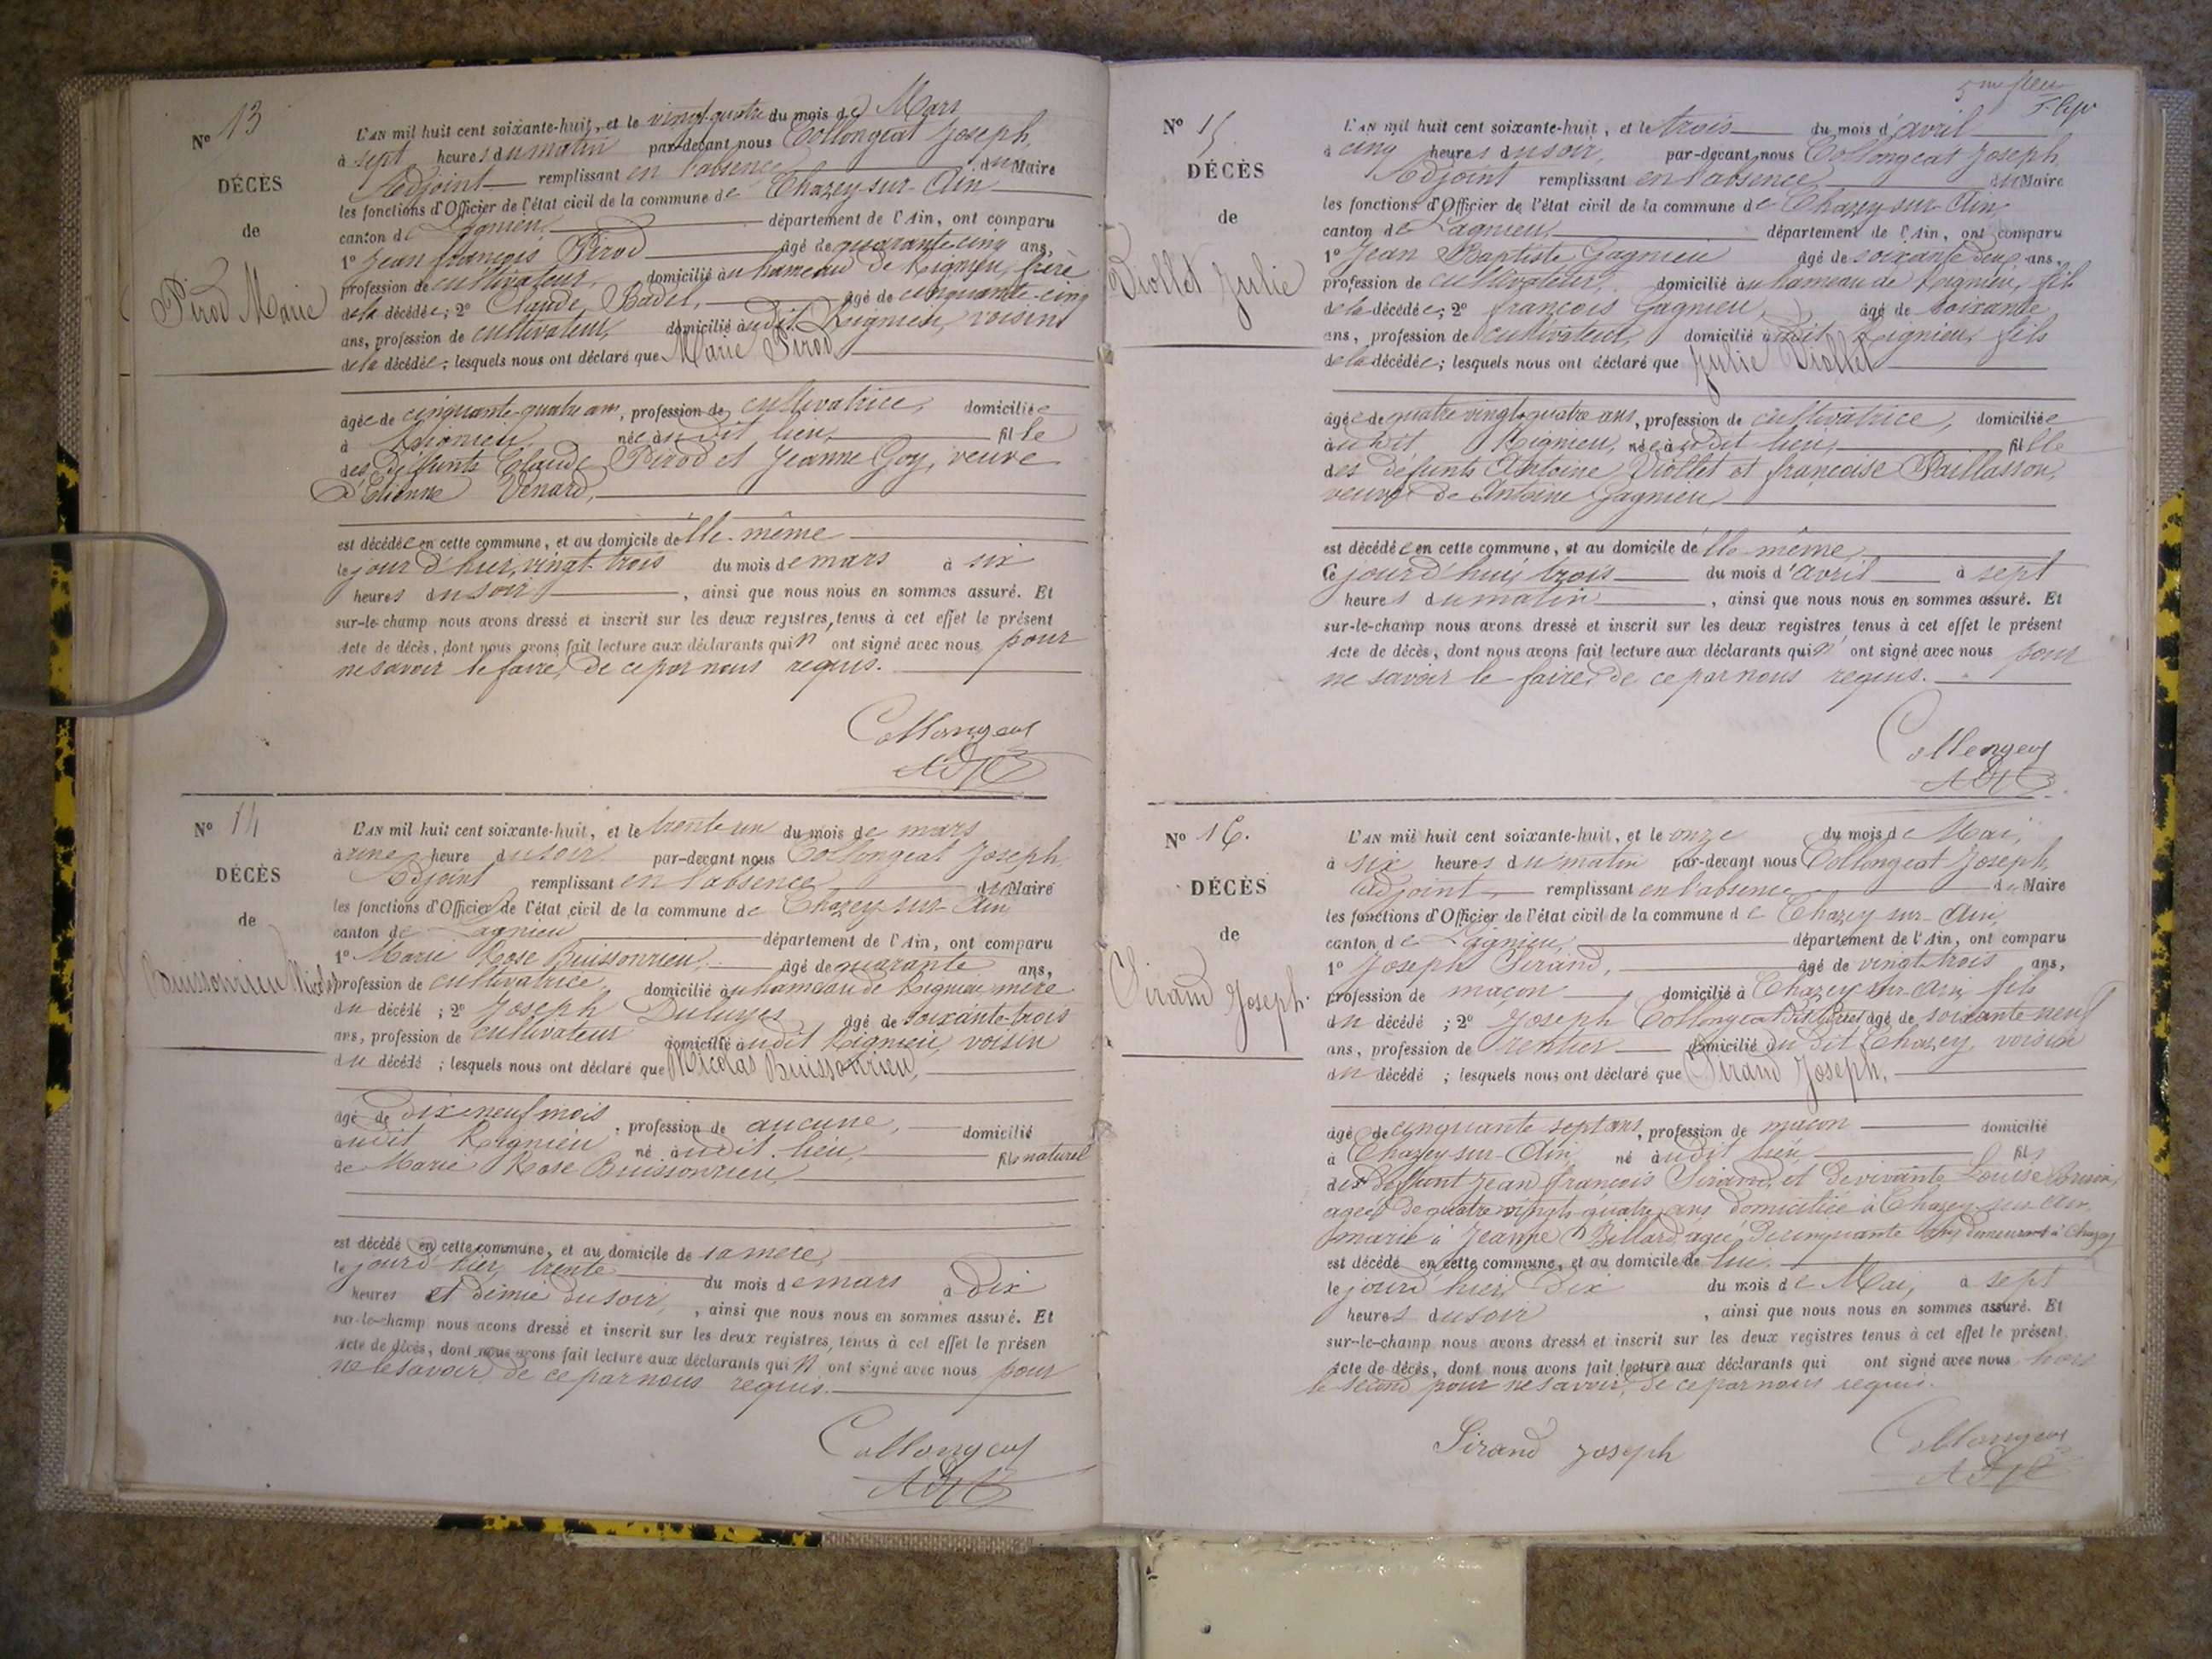 Nº 13
DÉCÈS
de
Pirod Marie
L'AN mil huit cent soixante-huit, et le vingt-quatre du mois de Mars
à sept heures du matin par-devant nous Collongeat Joseph,
Adjoint remplissant en l'absence du Maire
les fonctions d'Officier de l'état civil de la commune de Chazey-sur-Ain
canton de Lagnieu, département de l'Ain, ont comparu
1º Jean françois Pirod âgé de quarante-cinq ans,
profession de cultivateur, domicilié au hameau de Rignieu, frère
de la décédée; 2º Claude Badet, âgé de cinquante-cinq
ans, profession de cultivateur, domicilié audit Rignieu, voisins
de la décédée; lesquels nous ont déclaré que Marie Pirod
âgée de cinquante-quatre ans, profession de cultivatrice, domiciliée
à Rignieu, née audit lieu, fille
des défunts Claude Pirod et Jeanne Goy, veuve
d'Etienne Venard,
est décédée en cette commune, et au domicile d'elle-même
le jour d'hier, vingt-trois du mois de mars à six
heures du soir, ainsi que nous nous en sommes assuré. Et
sur-le-champ nous avons dressé et inscrit sur les deux registres, tenus à cet effet le présent
Acte de décès, dont nous avons fait lecture aux déclarants qui n'ont signé avec nous pour
ne savoir le faire, de ce par nous requis.
Collongeat
Adjt
Nº 14
DÉCÈS
de
Buissonrieu Nicolas
L'AN mil huit cent soixante-huit, et le trente un du mois de mars
à une heure du soir par-devant nous Collongeat Joseph,
Adjoint remplissant en l'absence du Maire
les fonctions d'Officier de l'état civil de la commune de Chazey-sur-Ain,
canton de Lagnieu département de l'Ain, ont comparu
1º Marie Rose Buissonrieu, âgé de quarante ans,
profession de cultivatrice, domicilié au hameau de Rignieu, mère
du décédé; 2º Joseph âgé de soixante-trois
ans, profession de cultivateur domicilié audit Rignieu, voisin
du décédé; lesquels nous ont déclaré que Nicolas Buissonrieu,
âgé de dix-neuf mois, profession de aucune, domicilié
audit Rignieu né audit lieu, fils naturel
de Marie Rose Buissonrieu,
est décédé en cette commune, et au domicile de sa mère,
le jour d'hier, trente du mois de mars à dix
heures et dimie du soir, ainsi que nous nous en sommes assuré. Et
sur-le-champ nous avons dressé et inscrit sur les deux registres, tenus à cet effet le présen
Acte de décès, dont nous avons fait lecture aux déclarants qui n'ont signé avec nous pour
ne le savoir, de ce par nous requis.
Collongeat
Adjt
Nº 15
DÉCÈS
de
Viollet Julie
L'AN mil huit cent soixante-huit, et le trois du mois d'avril
à cinq heures du soir, par-devant nous Collongeat Joseph
Adjoint remplissant en l'absence du Maire
les fonctions d'Officier de l'état civil de la commune de Chazey-sur-Ain,
canton de Lagnieu département de l'Ain, ont comparu
1º Jean Baptiste Gagnieu âgé de soixante deux ans,
profession de cultivateur, domicilié au hameau de Rignieu, fils
de la décédée; 2º françois Gagnieu, âgé de soixante
ans, profession de cultivateur, domicilié audit Rignieu, fils
de la décédée; lesquels nous ont déclaré que Julie Viollet
âgée de quatre vingt-quatre ans, profession de cultivatrice, domiciliée
audit Rignieu, née audit lieu, fille
des défunts Antoine Viollet et françoise Paillasson,
veuve de Antoine Gagnieu
est décédée en cette commune, et au domicile d'elle-même,
Ce jourd'hui trois du mois d'avril à sept
heures du matin, ainsi que nous nous en sommes assuré. Et
sur-le-champ nous avons dressé et inscrit sur les deux registres tenus à cet effet le présent
Acte de décès, dont nous avons fait lecture aux déclarants qui n'ont signé avec nous pour
ne savoir le faire, de ce par nous requis.
Collongeat
Adjt
Nº 16.
DÉCÈS
de
Sirand Joseph.
L'AN mil huit cent soixante-huit, et le onze du mois de Mai,
à six heures du matin par-devant nous Collongeat Joseph,
adjoint, remplissant en l'absence du Maire
les fonctions d'Officier de l'état civil de la commune de Chazey-sur-Ain,
canton de Lagnieu, département de l'Ain, ont comparu
1º Joseph Sirand, âgé de vingt-trois ans,
profession de maçon domicilié à Chazey-sur-Ain, fils
du décédé; 2º Joseph Collongeat âgé de soixante neuf
ans, profession de rentier domicilié au dit Chazey, voisin
du décédé; lesquels nous ont déclaré que Sirand Joseph,
âgé de cinquante sept ans, profession de maçon domicilié
à Chazey-sur-Ain, né audit lieu, fils
de défunt Jean françois Sirand, et de vivante Louise
agée de quatre vingt-quatre ans domiciliée à Chazey-sur-Ain,
marié à Jeanne Billard agée de cinquante ans demeurant à Chazey
est décédé en cette commune, et au domicile de lui.
le jour d'hier dix du mois de Mai, à sept
heures du soir, ainsi que nous nous en sommes assuré. Et
sur-le-champ nous avons dressé et inscrit sur les deux registres tenus à cet effet le présent
Acte de décès, dont nous avons fait lecture aux déclarants qui ont signé avec nous hors
le second pour ne savoir, de ce par nous requis.
Sirand Joseph
Collongeat
Adjt